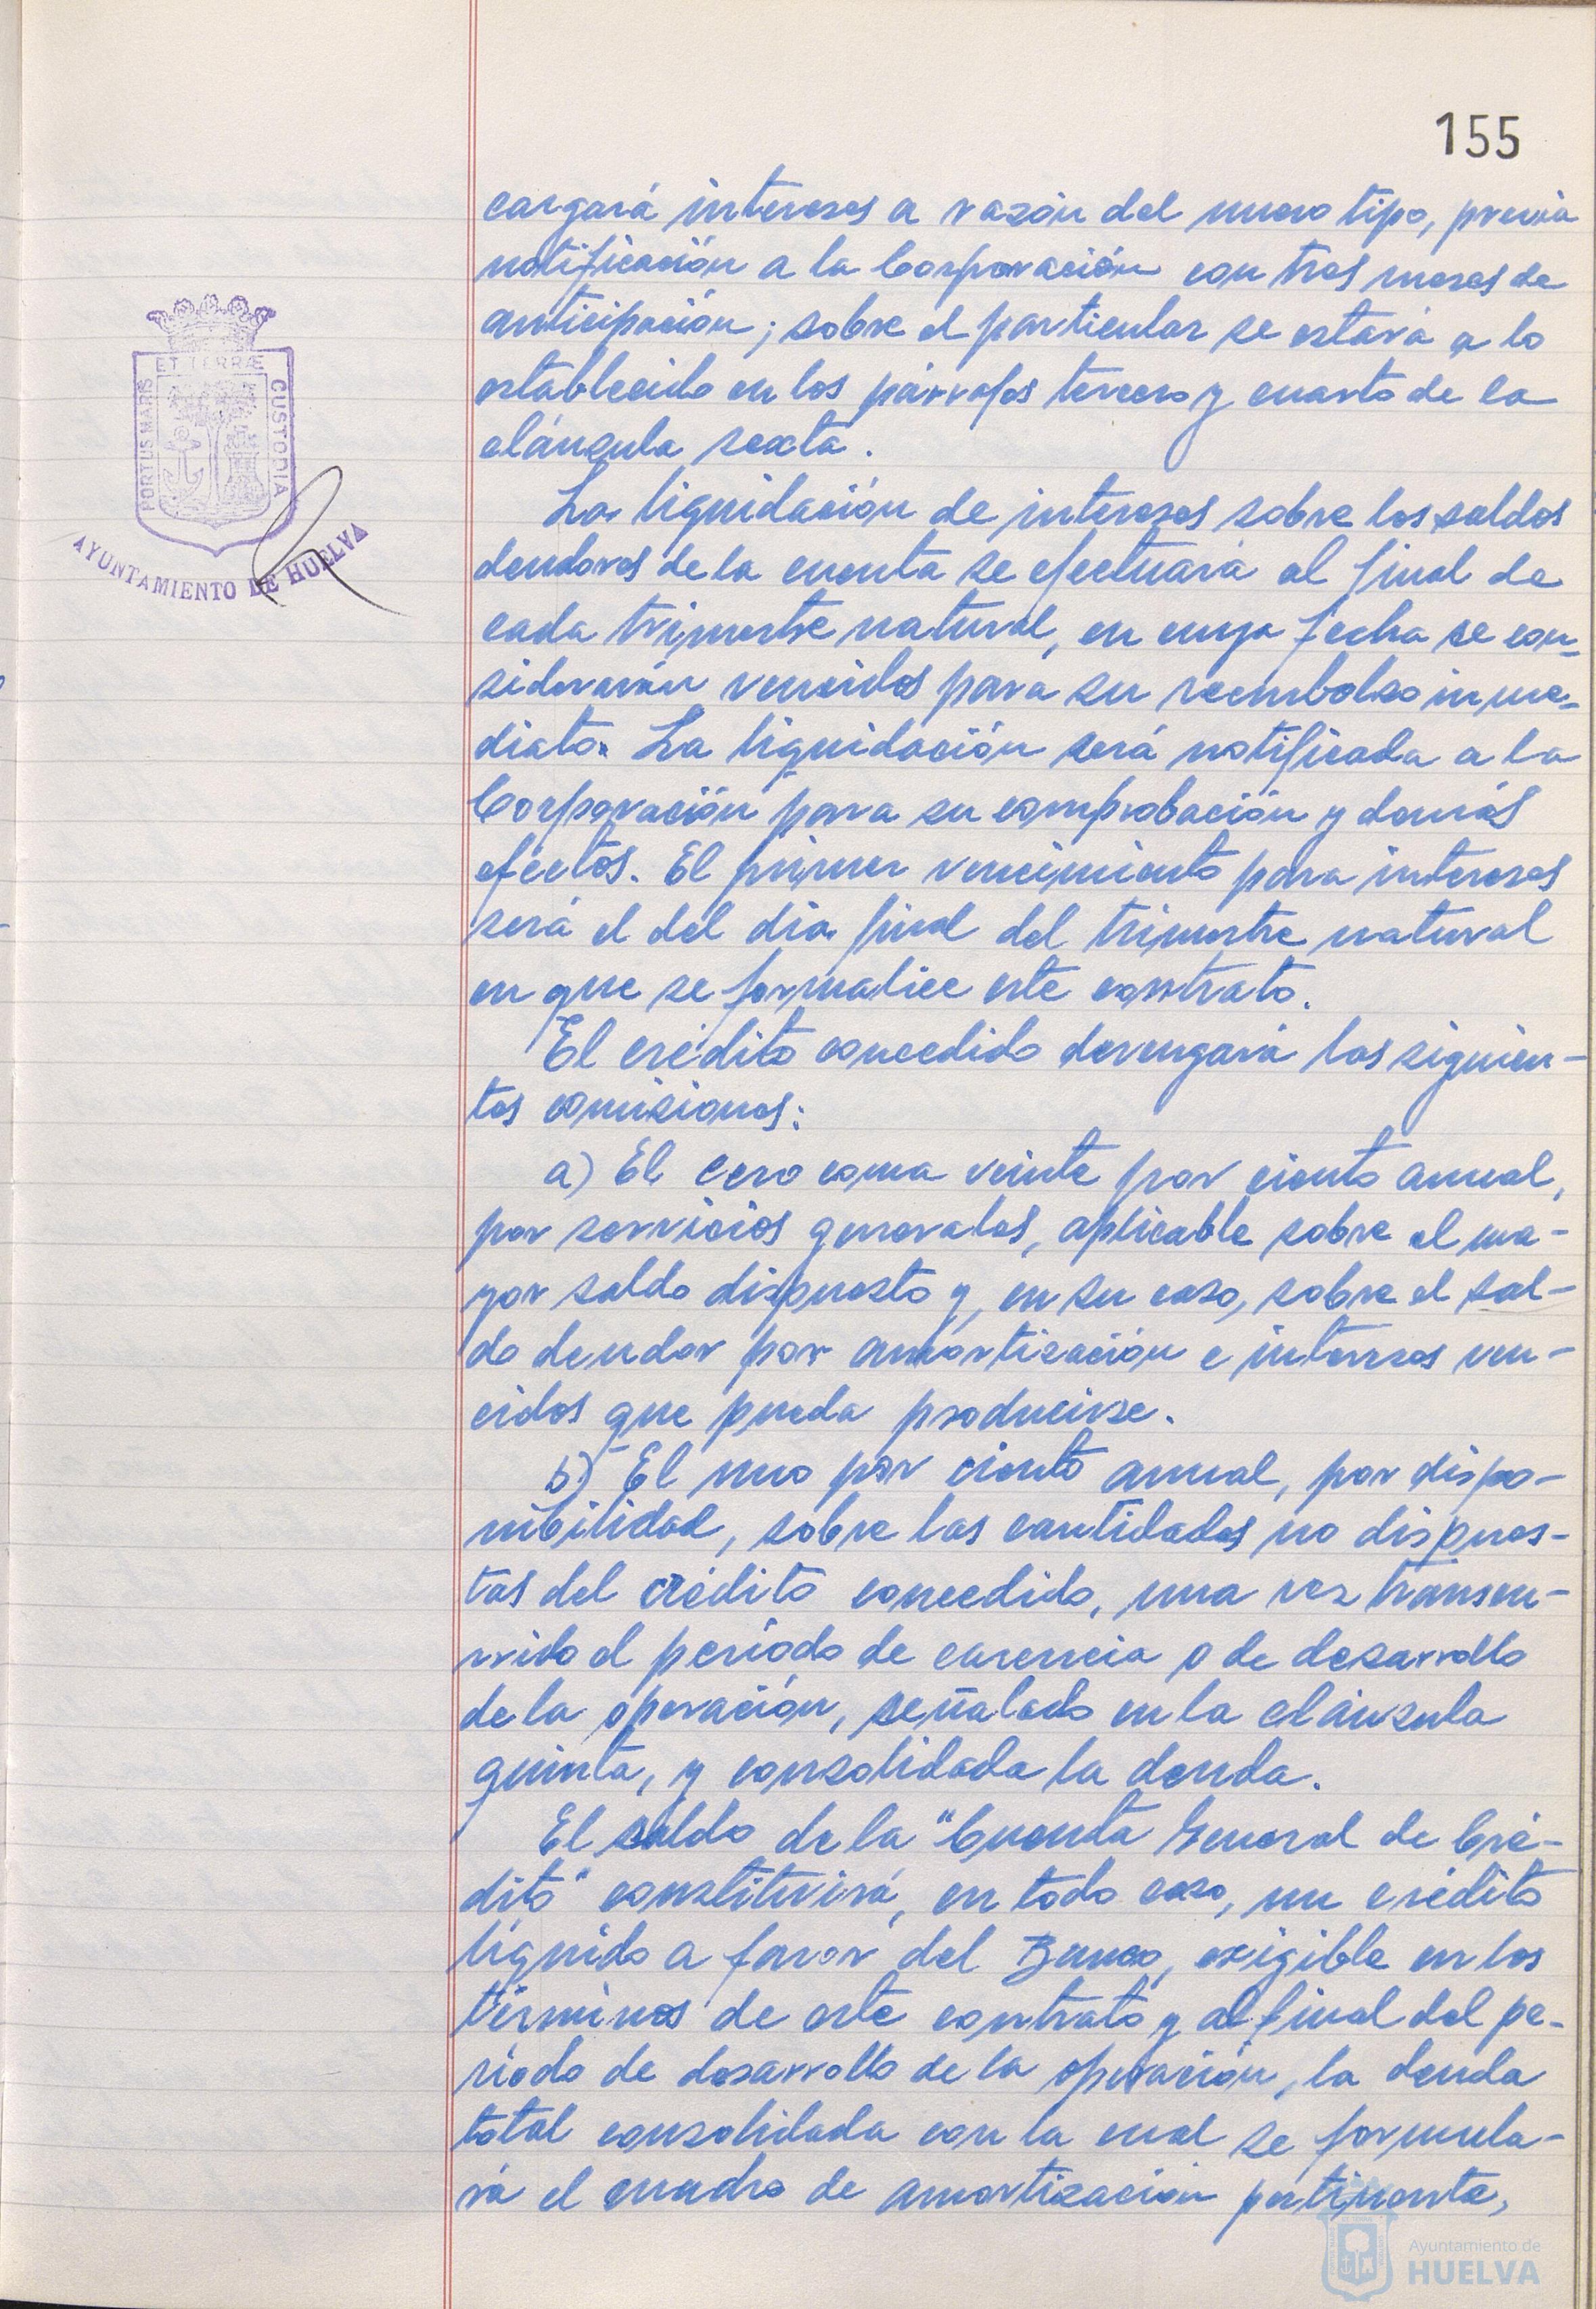 155
cargará intereses a razón del nuevo tipo, previa
notificación a la Corporación con tres meses de
anticipación; sobre el particular se estará a lo
establecido en los párrafos tercero y cuarto de la
cláusula sexta.
La liquidación de intereses sobre los saldos
deudores de la cuenta se efectuará al final de
cada trimestre natural, en cuya fecha se con-
siderarán vencidos para su reembolso inme-
diato. La liquidación será notificada a la
Corporación para su comprobación y demás
efectos. El primer vencimiento para intereses
será el del día final del trimestre natural
en que se formalice este contrato.
El crédito concedido devengará las siguien-
tes comisiones:
a) El cero coma veinte por ciento anual,
por servicios generales, aplicable sobre el ma-
yor saldo dispuesto y, en su caso, sobre el sal-
do deudor por amortización e intereses ven-
cidos que pueda producirse.
b) El uno por ciento anual, por dispo-
nibilidad, sobre las cantidades no dispues-
tas del crédito concedido, una vez transcu-
rrido el período de carencia o de desarrollo
de la operación, señalado en la cláusula
quinta, y consolidada la deuda.
El saldo de la "Cuenta General de Cré-
dito" constituirá, en todo caso, un crédito
líquido a favor del Banco, exigible en los
términos de este contrato y al final del pe-
ríodo de desarrollo de la operación, la deuda
total consolidada con la cual se formula-
rá el cuadro de amortización pertinente,
ET TERRÆ
PORTUS MARIS
CUSTODIA
AYUNTAMIENTO DE HUELVA
Ayuntamiento de
HUELVA